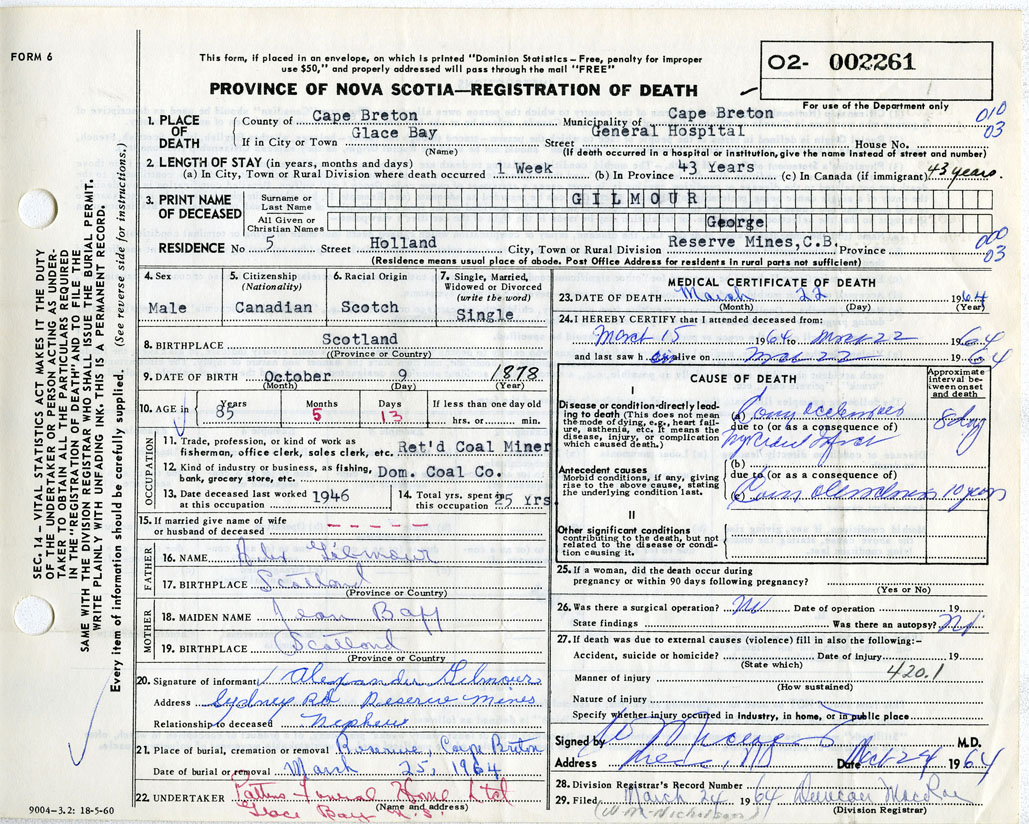 FORM 6
This form, if placed in an envelope, on which is printed "Dominion Statistics – Free, penalty for improper
use $50," and properly addressed will pass through the mail "FREE"
O2- 002261
PROVINCE OF NOVA SCOTIA—REGISTRATION OF DEATH
For use of the Department only
010
03
1. PLACE OF DEATH
County of Cape Breton Municipality of Cape Breton
If in City or Town Glace Bay Street General Hospital House No.
(Name) (If death occurred in a hospital or institution, give the name instead of street and number)
2. LENGTH OF STAY (in years, months and days)
(a) In City, Town or Rural Division where death occurred 1 Week (b) In Province 43 Years (c) In Canada (if immigrant) 43 years.
3. PRINT NAME OF DECEASED
Surname or Last Name GILMOUR
All Given or Christian Names George
000
03
RESIDENCE No 5 Street Holland City, Town or Rural Division Reserve Mines,C.B. Province
(Residence means usual place of abode. Post Office Address for residents in rural parts not sufficient)
SEC. 14 – VITAL STATISTICS ACT MAKES IT THE DUTY
OF THE UNDERTAKER OR PERSON ACTING AS UNDER-
TAKER TO OBTAIN ALL THE PARTICULARS REQUIRED
IN THE "REGISTRATION OF DEATH" AND TO FILE THE
SAME WITH THE DIVISION REGISTRAR WHO SHALL ISSUE THE BURIAL PERMIT.
WRITE PLAINLY WITH UNFADING INK. THIS IS A PERMANENT RECORD.
Every item of information should be carefully supplied. (See reverse side for instructions.)
4. Sex
Male
5. Citizenship
(Nationality)
Canadian
6. Racial Origin
Scotch
7. Single, Married,
Widowed or Divorced
(write the word)
Single
8. BIRTHPLACE Scotland
((Province or Country)
9. DATE OF BIRTH October 9 1878
(Month) (Day) (Year)
10. AGE in Years Months Days If less than one day
85 5 13 hrs. or min.
OCCUPATION
11. Trade, profession, or kind of work as
fisherman, office clerk, sales clerk, etc. Ret'd Coal Miner
12. Kind of industry or business, as fishing,
bank, grocery store, etc. Dom. Coal Co.
13. Date deceased last worked
at this occupation 1946
14. Total yrs. spent in
this occupation 25 Yrs.
15. If married give name of wife
or husband of deceased - - - - - -
FATHER
16. NAME Alex Gilmour
17. BIRTHPLACE Scotland
(Province or Country)
MOTHER
18. MAIDEN NAME Jean
19. BIRTHPLACE Scotland
(Province or Country
20. Signature of informant Alexander Gilmour
Address Sydney Rd Reserve Mines
Relationship to deceased Nephew
21. Place of burial, cremation or removal Reserve, Cape Breton
Date of burial or removal March 25, 1964
22. UNDERTAKER Pattens Funeral Home Ltd
(Name and address)
Glace Bay N.S.
9004-3.2: 18-5-60
MEDICAL CERTIFICATE OF DEATH
23. DATE OF DEATH March 22 1964
(Month) (Day) (Year)
24. I HEREBY CERTIFY that I attended deceased from:
March 15 1964 to March 22 1964
and last saw h im alive on March 22 1964
CAUSE OF DEATH
Approximate
interval be-
tween onset
and death
I
Disease or condition directly lead-
ing to death (This does not mean
the mode of dying, e.g., heart fail-
ure, asthenia, etc. It means the
disease, injury, or complication
which caused death.)
(a) 8 days
due to (or as a consequence of)
Antecedent causes
Morbid conditions, if any, giving
rise to the above cause, stating
the underlying condition last.
(b)
due to (or as a consequence of)
(c) 10 years
II
Other significant conditions
contributing to the death, but not
related to the disease or condi-
tion causing it.
25. If a woman, did the death occur during
pregnancy or within 90 days following pregnancy?
(Yes or No)
26. Was there a surgical operation? No Date of operation 19
State findings Was there an autopsy? No
27. If death was due to external causes (violence) fill in also the following:–
Accident, suicide or homicide? Date of injury 19
(State which)
420.1
Manner of injury
(How sustained)
Nature of injury
Specify whether injury occurred in industry, in home, or in public place
Signed by M.D.
Address Date Mch 24 1964
28. Division Registrar's Record Number
29. Filed March 24 1964 Duncan MacRae
(W M Nicholson) (Division Registrar)